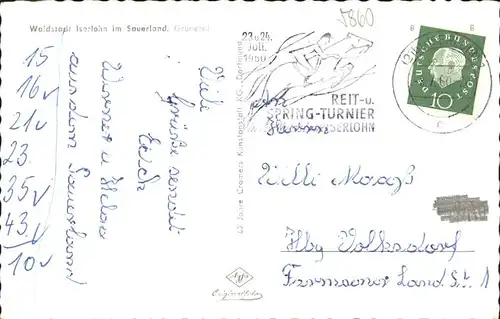 Waldstadt Iserlohn im Sauerland.
5860
23.u.24.
Juli
1960
REIT-u.
SPRING-TURNIER
ISERLOHN
DEUTSCHE BUNDESPOST
10
15
16
21
23.
35
43.
10
Viele
Grüße sendet
Euch
Werner u. Helga
aus dem Sauerland
Cramers Kunstanstalt KG., Dortmund
Agfa
An
Herrn
Willi Maaß
Hbg Volksdorf
Farmsener Land Str. 1